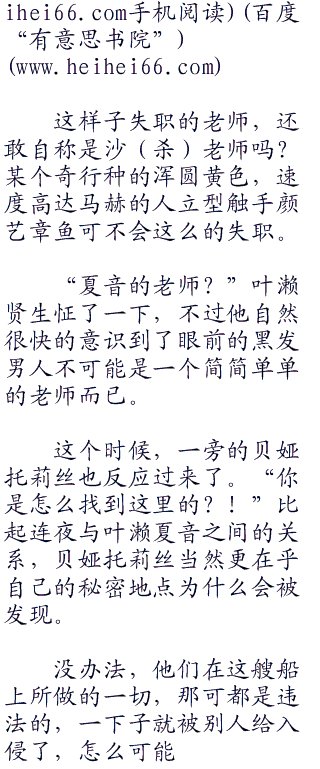 ihei66.com手机阅读)(百度
“有意思书院”)
(www.heihei66.com)
这样子失职的老师，还
敢自称是沙（杀）老师吗？
某个奇行种的浑圆黄色，速
度高达马赫的人立型触手颜
艺章鱼可不会这么的失职。
“夏音的老师？”叶濑
贤生怔了一下，不过他自然
很快的意识到了眼前的黑发
男人不可能是一个简简单单
的老师而已。
这个时候，一旁的贝娅
托莉丝也反应过来了。“你
是怎么找到这里的？！”比
起连夜与叶濑夏音之间的关
系，贝娅托莉丝当然更在乎
自己的秘密地点为什么会被
发现。
没办法，他们在这艘船
上所做的一切，那可都是违
法的，一下子就被别人给入
侵了，怎么可能